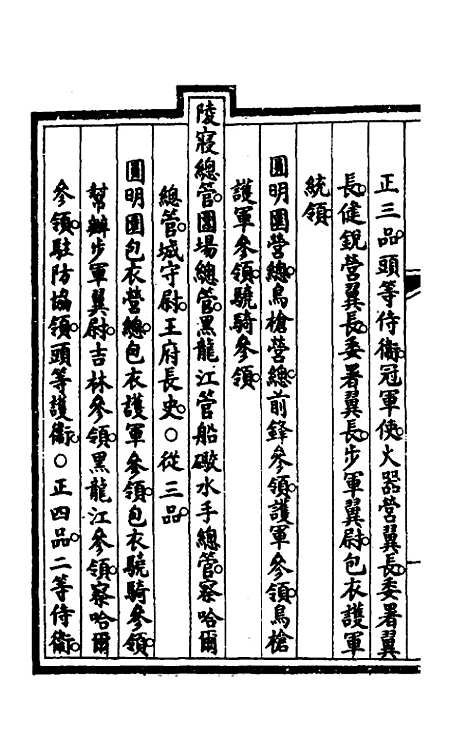 正三品頭等侍衛冠軍使火器營翼長委署翼
長健銳營翼長委署翼長步軍翼尉包衣護軍
統領
圓明園營總鳥槍營總前鋒參領護軍參領鳥槍
護軍參領驍騎參領
陵寢總管圍場總管黑龍江管船礮水手總管察哈爾
總管城守尉王府長史○從三品
圓明園包衣營總包衣護軍參領包衣驍騎參領
幫辦步軍翼尉吉林參領黑龍江參領察哈爾
參領駐防協領頭等護衛○正四品二等侍衛